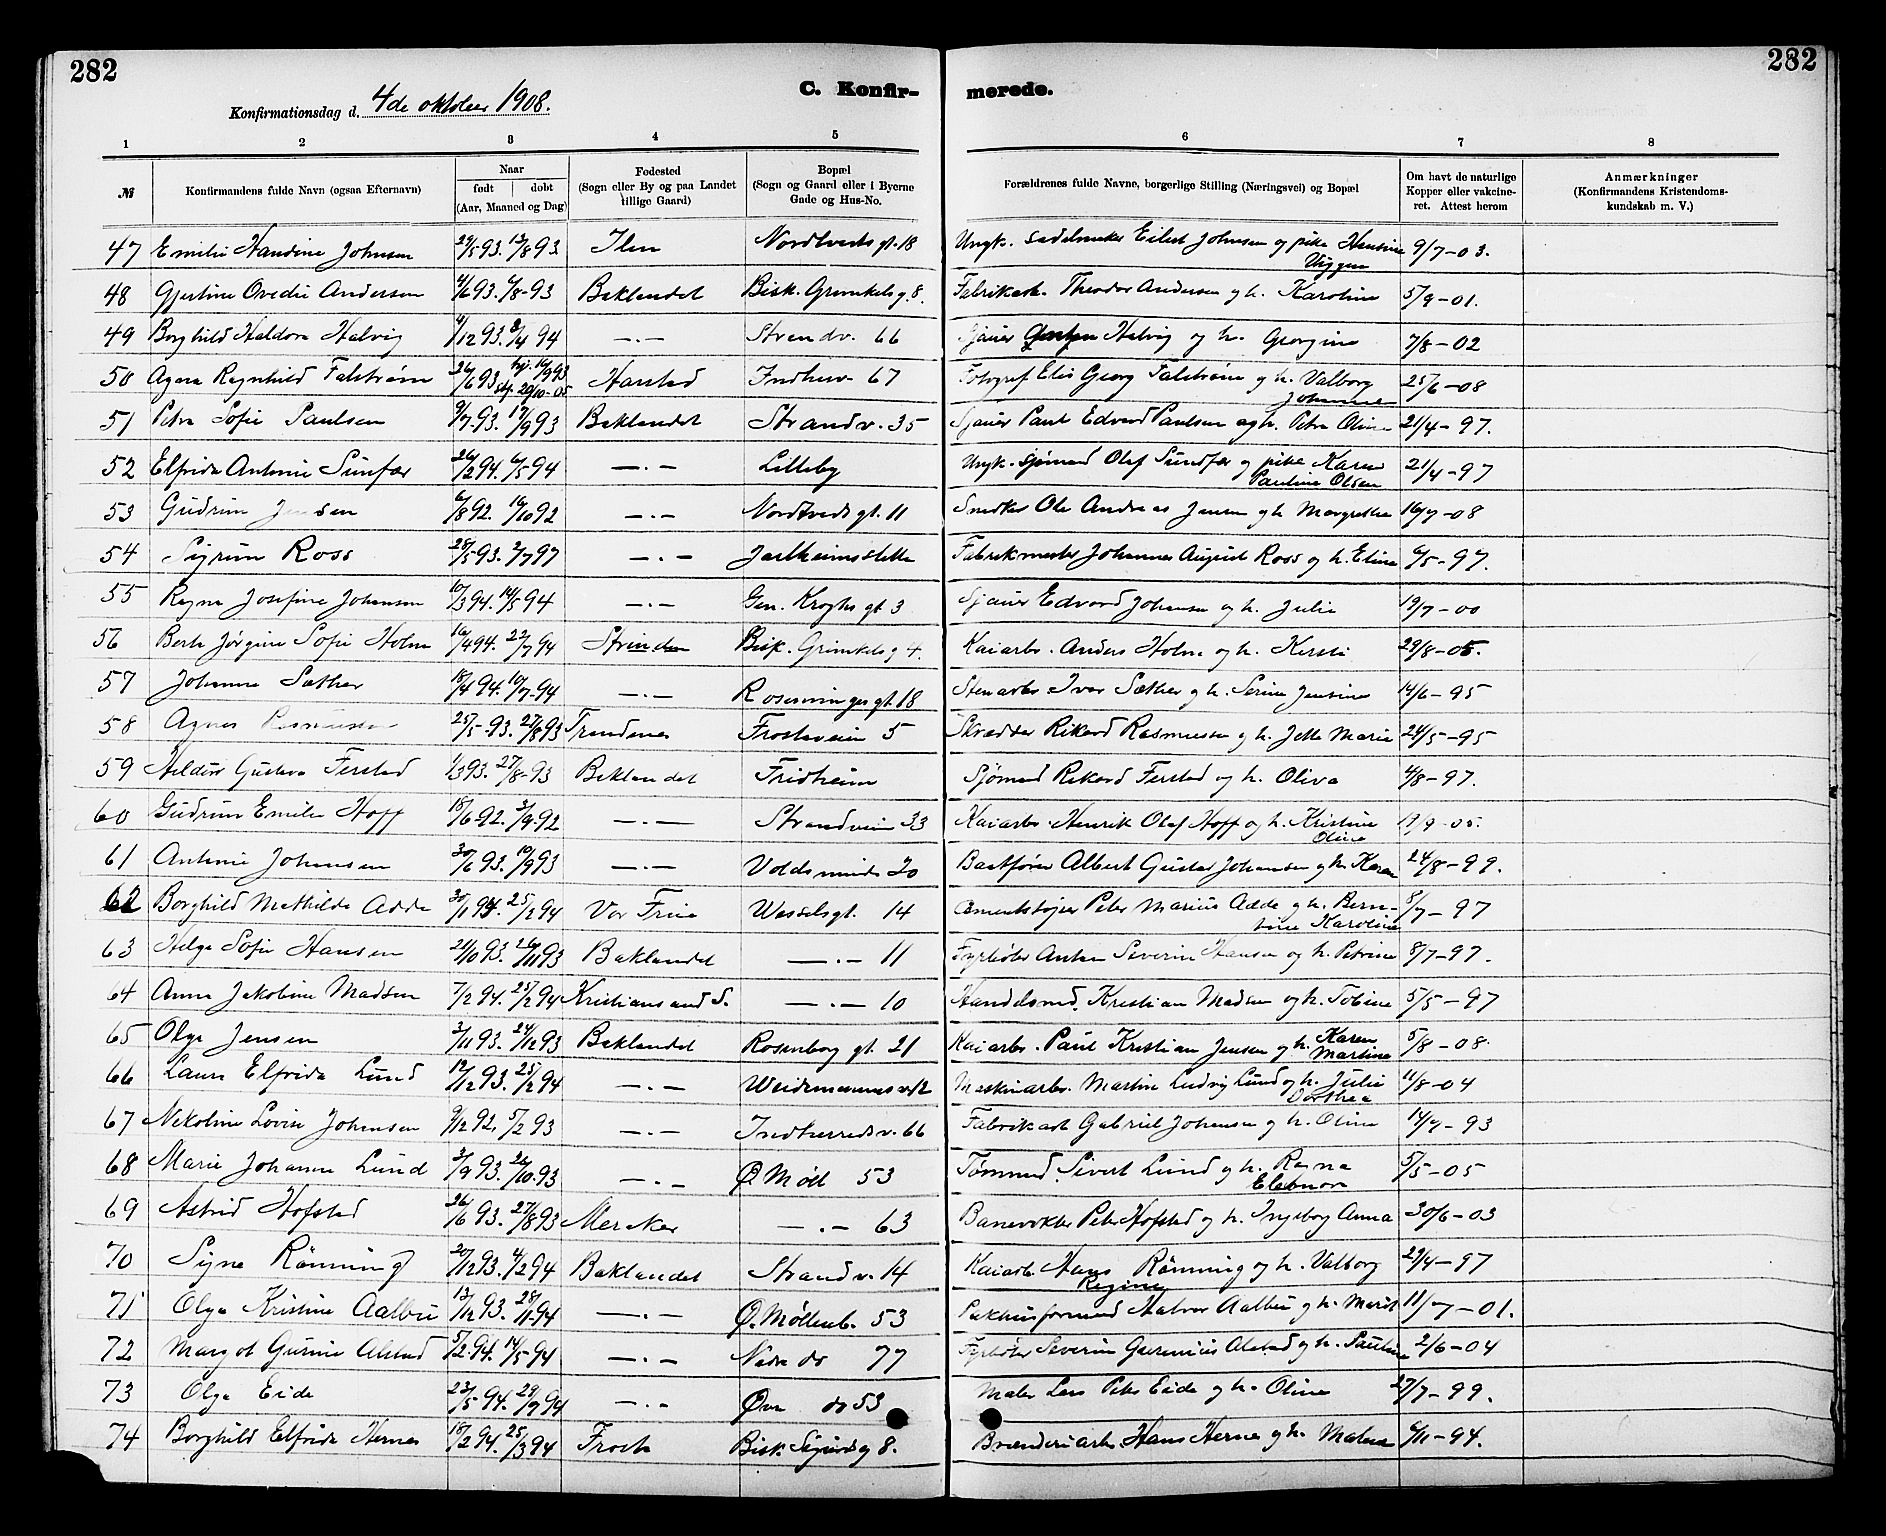 282
282
C. Konfir-
merede.
Konfirmationsdag d. 4de oktober 1908.
1 2 3 4 5 6 7 8
№
Konfirmandens fulde Navn (ogsaa Efternavn)
Naar
født døbt
(Aar, Maaned og Dag)
Fødested
(Sogn eller By og paa Landet
tillige Gaard)
Bopæl
(Sogn og Gaard eller i Byerne
Gade og Hus-No.
Forældrenes fulde Navne, borgerlige Stilling (Næringsvei) og Bopæl
Om havt de naturlige
Kopper eller vakcine-
ret. Attest herom
Anmærkninger
(Konfirmandens Kristendoms-
kundskab m. V.)
47 Emilie Johnsen 29/5 93. 13/8 93 Ilen 18 Ungk. sadelmaker Eilert Johnsen og pike Hansine 9/7-03.
Viggen
48 Gjertine Ovedie Andersen 6/8-93 Baklandet Bisk. Grimkelsg. 8. Fabrikarb. Theodor Andersen og h. Karoline 5/9-01.
49 Borghild Haldora Helvig 4/12 93. 94 —.— Strandv. 66 Sjauer Helvig og h. Georgine 7/8-02
50 Agnes Ragnhild Falstrøm 26/6 93 Harstad Indherv. 67 Fotograf Elis Georg Falstrøm og h. Valborg 25/6-08
Johanne
51 Petra Sofie Paulsen 9/7-93. 17/9 93 Baklandet Strandv. 35 Sjauer Paul Edvard Paulsen og h. Petra Oline 21/4-97.
52 Elfrida Antonie Sundfær 26/2 94. 6/5 94 —.— Lilleby Ungk. sjømand Olaf Sundfær og pike Karen 21/4-97
Pauline Olsen
53 Gudrun Jensen 6/8 92. 16/10 92 —.— Nordtvedsgt. 11 Snedker Ole Andreas Jensen og h. Margrethe 16/7-08
54 Sigrun Ross 28/5-93. 2/7 97 —.— Jarlheimsletta Fabrikmester Johannes August Ross og h. Eline 6/5-97.
55 Ragna Josefine Johansen 10/3 94. 14/5 94 —.— Gen. Kroghs gt. 3 Sjauer Edvard Johansen og h. Julie 19/7-00
56 Berta Jørgine Sofie Holm 16/4 94. 22/7 94 Strinden Bisk. Grimkelsg 4. Kaiarb. Anders Holm og h. Kersti 29/8-05.
57 Johanne Sæther 18/4 94. 10/7-94 —.— Rosenvinges gt. 18 Stenarb. Ivar Sæther og h. Serine Jensine 14/6-95
58 Agnes Rasmussen 25/5-93. 27/8 93 Trondenes Frostaveien 5 Skrædder Rikard Rasmussen og h. Jette Marie 24/5-95
59 Gustava Ferstad 1/3 93. 27/8-93 Baklandet Fridheim Sjømand Rikard Ferstad og h. Oliva 4/8-97.
60 Gudrun Emilie Hoff 18/6-92. 3/9-92 —.— Strandveien 33 Kaiarb. Henrik Olaf Hoff og h. Kristine 19/9-05.
Oline
61 Antonie Johansen 30/6 93. 10/9 93 —.— Voldsminde 20 Baatfører Albert Gustav Johansen og h. Karen 24/8-99.
62 Borghild Mathilde Adde 30/11 93. 25/2 94 Vor Frue Wesselsgt. 14 Peter Marius Adde og h. Bern- 8/7-97
tine Karoline
63 Helga Sofie Hansen 21/10 93. 26/11 93 Baklandet —.— 11 Fyrbøter Anton Severin Hansen og h. Petrine 8/7-97.
64 Anna Jakobine Madsen 7/2 94. 25/2 94 Kristiansand S. —.— 10 Handelsmd. Kristian Madsen og h. Tobine 5/5-97
65 Olga Jensen 3/11 93. 24/12 93 Baklandet Rosenborg gt. 21 Kaiarb. Paul Kristian Jensen og h. Karen 5/8-08.
Martine
66 Laura Elfrida Lund 12/12 93. 25/2 94 —.— Maskinarb. Martin Ludvig Lund og h. Julie 11/8-04
Dorthea
67 Nekoline Lovise Johansen 9/12 92. 5/2 93 —.— Indherredsv. 66 Fabrikarb Gabriel Johansen og h. Oline 14/7-93
68 Marie Johanne Lund 3/9 93. 93 —.— Ø. Møll 53 Tømmermd. Sivert Lund og h. Ragna 5/5-05
Eleonora
69 Astrid Hofstad 26/6 93. 27/8 93 Meraker —.— 63 Banevokter Peter Hofstad og h. Ingeborg Anna 30/6-03
70 Signe Rønning 20/12 93. 4/2 94 Baklandet Strandv. 14 Kaiarb. Hans Rønning og h. Valborg 29/4-97
Regine
71 Olga Kristine Aalbu 13/12 93. —.— Ø. Møllenb. 53 Pakhusformand Halvor Aalbu og h. Marit 11/7-01.
72 Margot Gurine Alstad 5/2-94. 14/5 94 —.— Nedre do 77 Fyrbøter Severin Alstad og h. Pauline 2/6-04
73 Olga Eide 23/5-94. 29/7 94 —.— Øvre do 53 Maler Lars Peter Eide og h. Oline 27/7-99.
74 Borghild Elfrida Hernes 18/2 94. 25/3 94 Frosta Bisk. Sigurdsg 8. Brænderiarb Hans Hernes og h. 6/11-94.